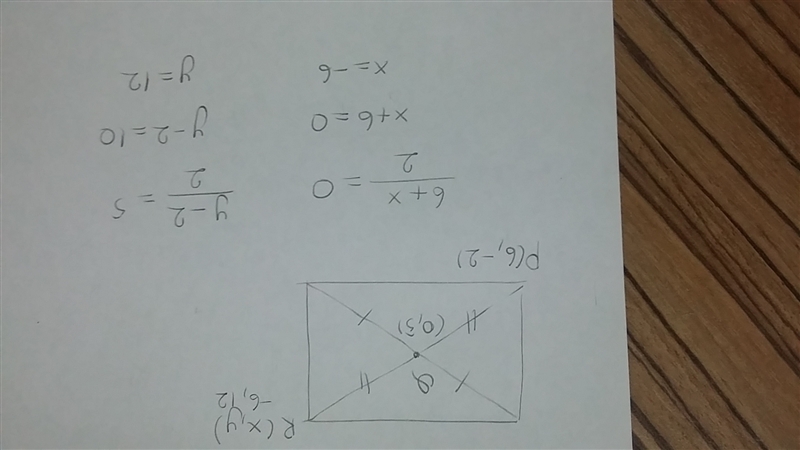 R (x,y)
-6,12
Q
(0,5)
P(6,-2)
6+x / 2 = 0   y-2 / 2 = 5
x+6=0   y-2=10
x=-6   y=12